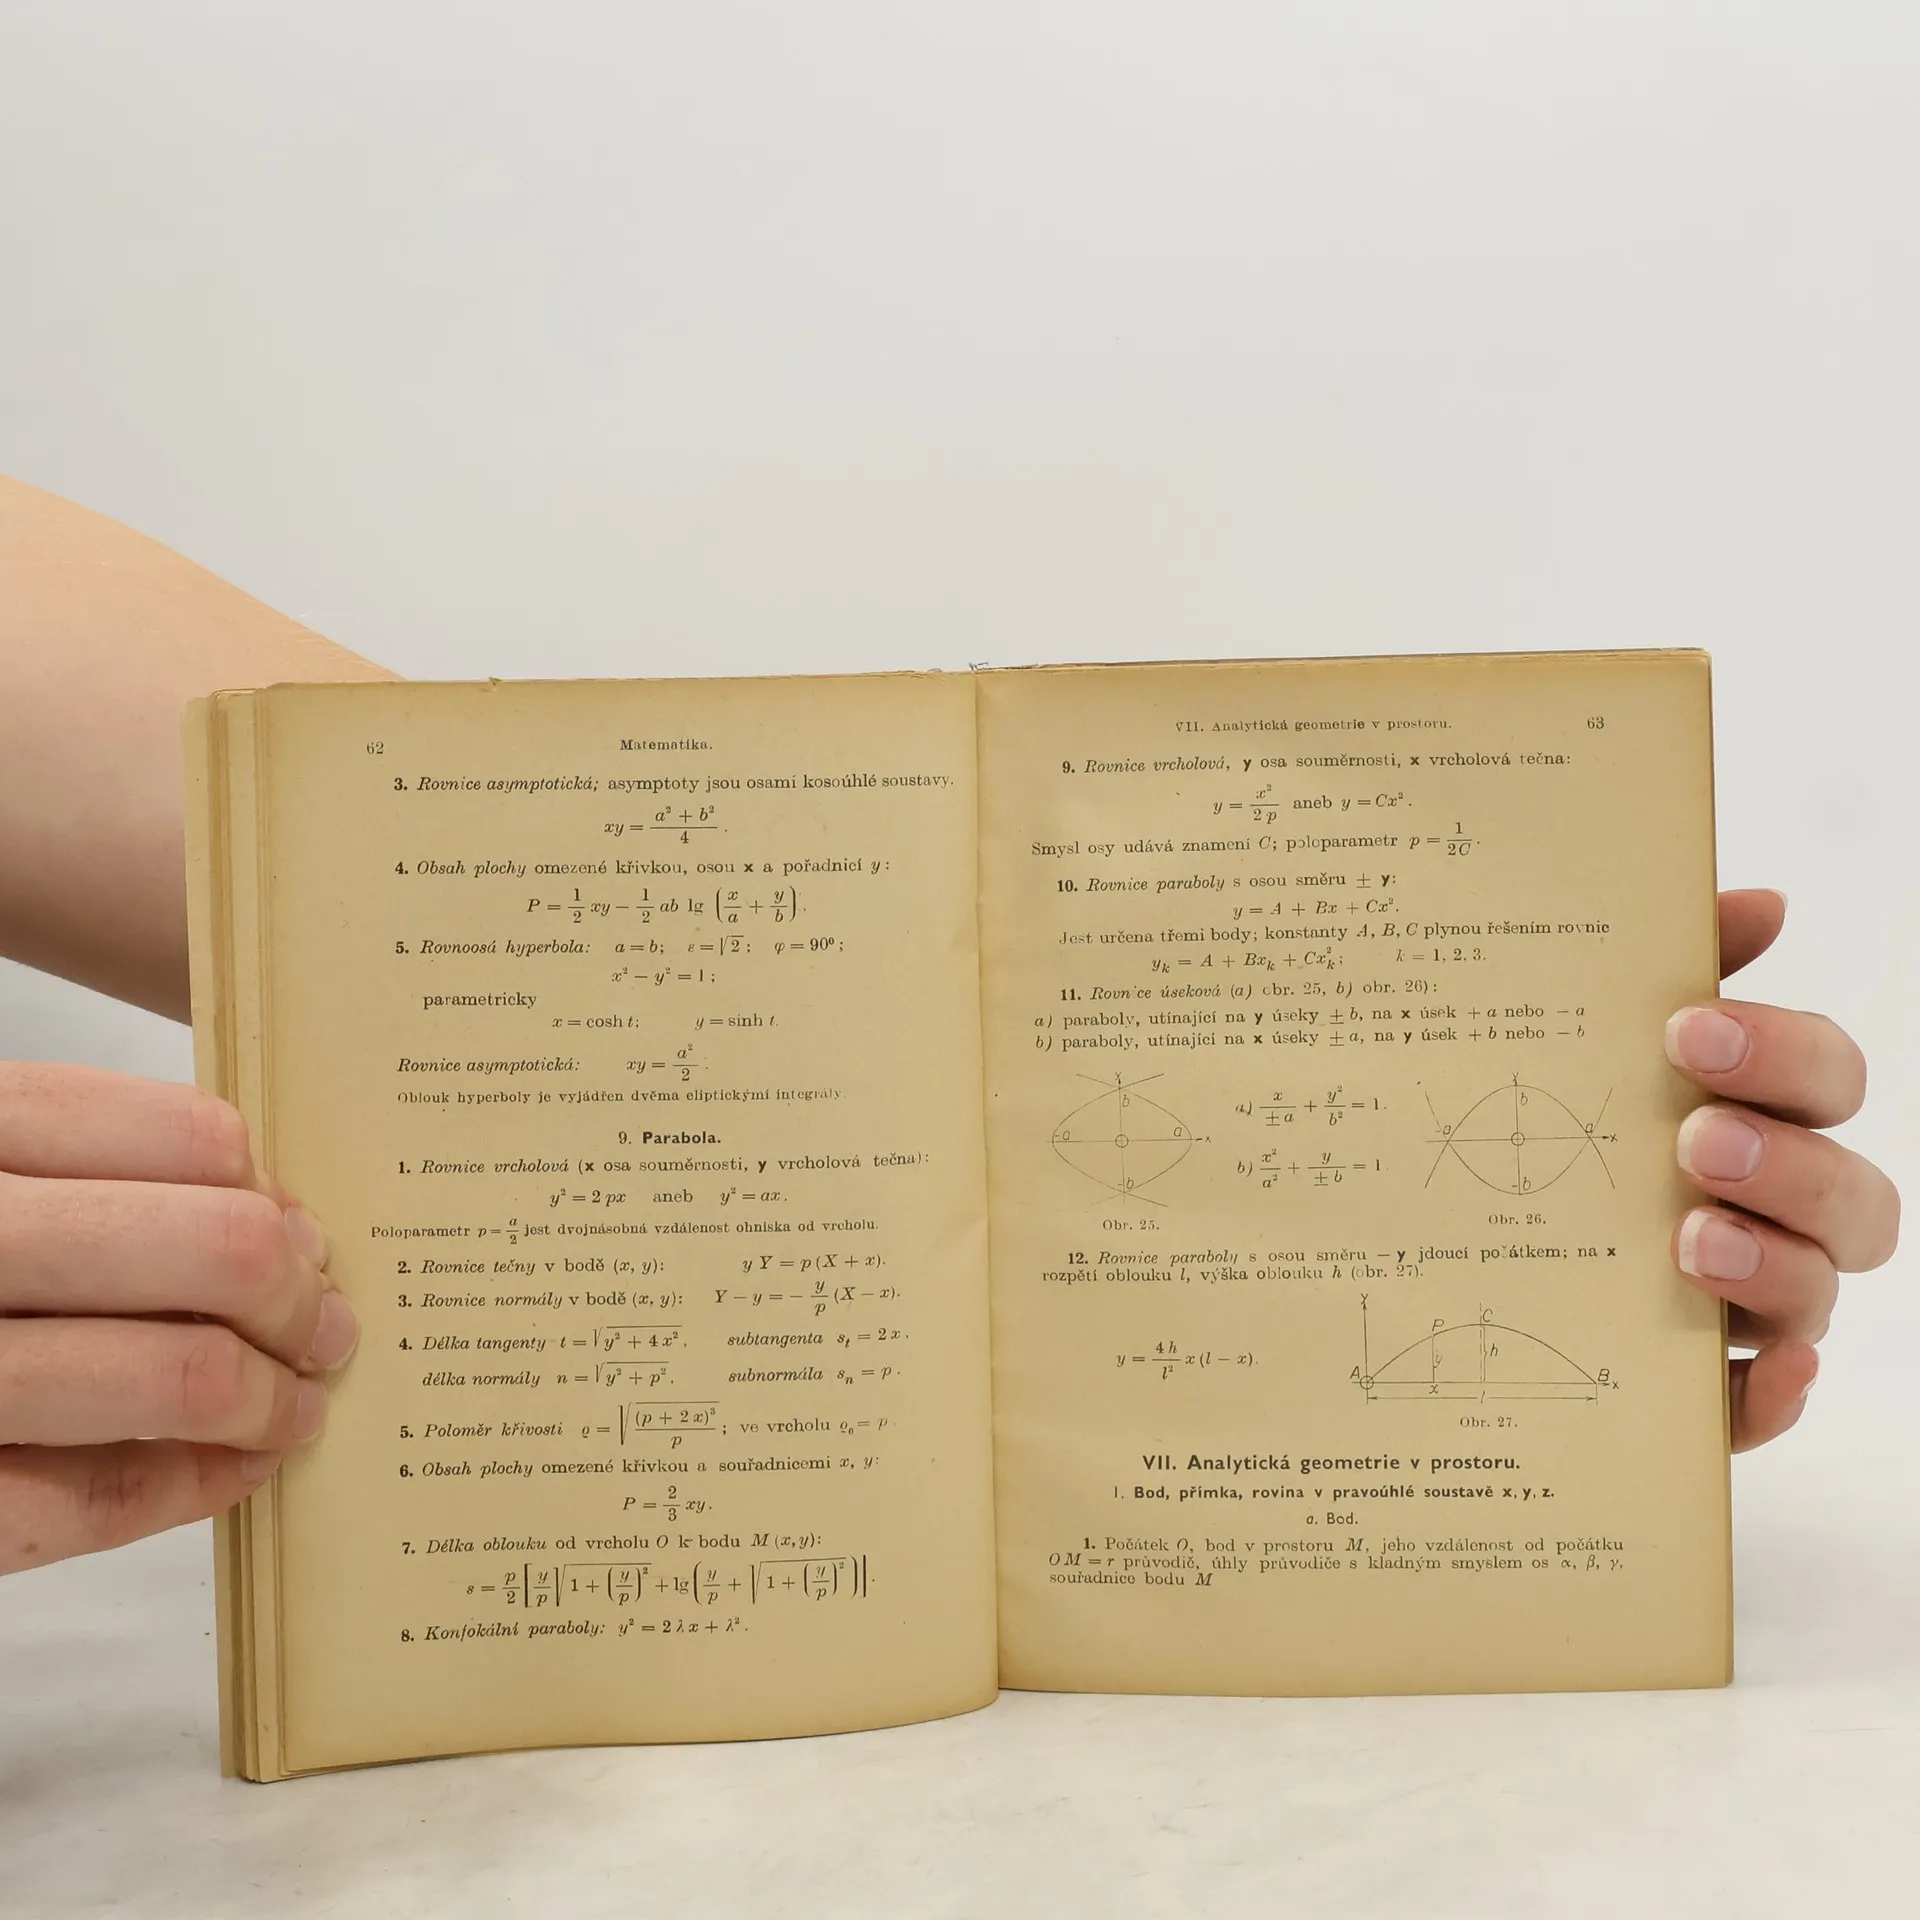 62 Matematika.
3. Rovnice asymptotická; asymptoty jsou osami kosoúhlé soustavy.
xy = (a² + b²)/4 .
4. Obsah plochy omezené křivkou, osou x a pořadnicí y:
P = 1/2 xy − 1/2 ab lg (x/a + y/b).
5. Rovnoosá hyperbola: a = b; ε = √2; φ = 90°;
x² − y² = 1;
parametricky
x = cosh t; y = sinh t.
Rovnice asymptotická: xy = a²/2 .
Oblouk hyperboly je vyjádřen dvěma eliptickými integrály.
9. Parabola.
1. Rovnice vrcholová (x osa souměrnosti, y vrcholová tečna):
y² = 2 px aneb y² = ax.
Poloparametr p = a/2 jest dvojnásobná vzdálenost ohniska od vrcholu.
2. Rovnice tečny v bodě (x, y): y Y = p (X + x).
3. Rovnice normály v bodě (x, y): Y − y = − y/p (X − x).
4. Délka tangenty t = √(y² + 4 x²), subtangenta sₜ = 2 x.
délka normály n = √(y² + p²), subnormála sₙ = p.
5. Poloměr křivosti ϱ = √((p + 2 x)³/p); ve vrcholu ϱ₀ = p.
6. Obsah plochy omezené křivkou a souřadnicemi x, y:
P = 2/3 xy.
7. Délka oblouku od vrcholu O k bodu M (x, y):
s = p/2 [y/p √(1 + (y/p)²) + lg (y/p + √(1 + (y/p)²))].
8. Konfokální paraboly: y² = 2 λ x + λ².
VII. Analytická geometrie v prostoru. 63
9. Rovnice vrcholová, y osa souměrnosti, x vrcholová tečna:
y = x²/2 p aneb y = Cx².
Smysl osy udává znamení C; poloparametr p = 1/2C.
10. Rovnice paraboly s osou směru ± y:
y = A + Bx + Cx².
Jest určena třemi body; konstanty A, B, C plynou řešením rovnic
yₖ = A + Bxₖ + Cxₖ²; k = 1, 2, 3.
11. Rovnice úseková (a) obr. 25, b) obr. 26):
a) paraboly, utínající na y úseky ± b, na x úsek + a nebo − a
b) paraboly, utínající na x úseky ± a, na y úsek + b nebo − b
Y b -a a x -b
a) x/±a + y²/b² = 1.
b) x²/a² + y/±b = 1.
Y b -a a x -b
Obr. 25.
Obr. 26.
12. Rovnice paraboly s osou směru − y jdoucí počátkem; na x
rozpětí oblouku l, výška oblouku h (obr. 27).
y = 4 h/l² x (l − x).
Y P C y h A x B x l
Obr. 27.
VII. Analytická geometrie v prostoru.
1. Bod, přímka, rovina v pravoúhlé soustavě x, y, z.
a. Bod.
1. Počátek O, bod v prostoru M, jeho vzdálenost od počátku
OM = r průvodič, úhly průvodiče s kladným smyslem os α, β, γ,
souřadnice bodu M